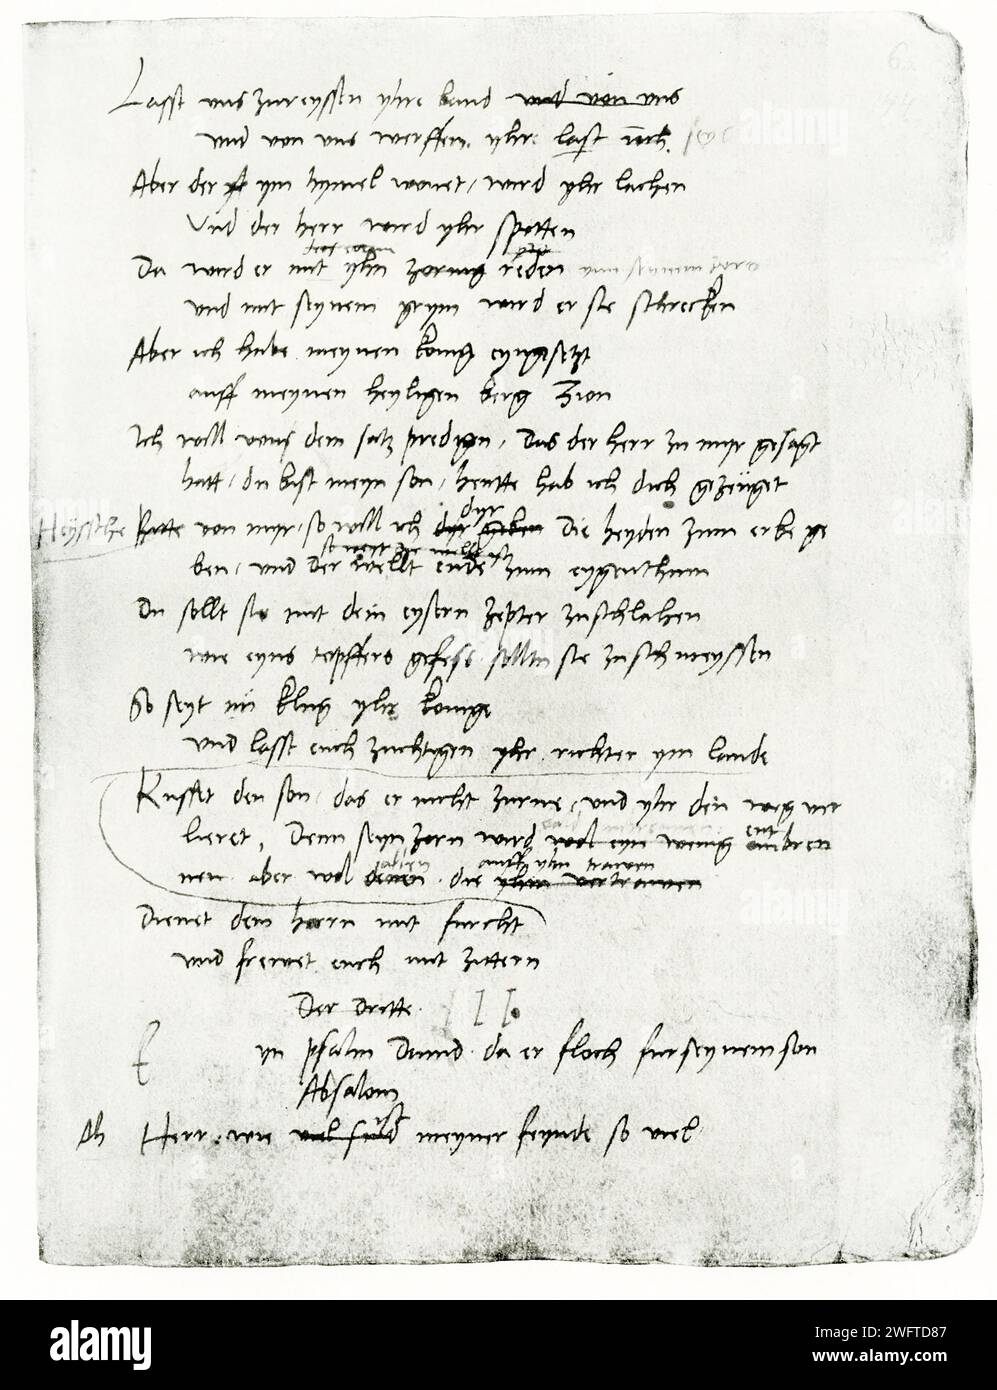 Lasst uns zureyssen yhre band und von uns
und von uns werffen. yhr last
Aber der ym hymel wonet, wird yhr lachen
Und der herr wird yhr spotten
Da wird er mit yhn zornig reden ynn seynem zorn
und mit seynem grym wird er sie schrecken
Aber ich habe meynen konig eyngesetzt
auff meynen heyligen berg Zion
Ich will von dem satz predigen, Das der herr zu myr gesagt
hatt, du bist meyn son, heutte hab ich dich gezeuget
Heyssche Bitte von myr, so will ich dyr geben dyr die heyden zum erbe ge
ben, und der wellt ende zum eygenthum
Du sollt sie mit dem eysern zepter zuschlahen
wie eyns topffers gefess solltu sie zuschmeyssen
So seyt nu klug yhr konige
und lasst euch zuchtigen yhr richter ym lande
Kusset den son, das er nicht zurne, und yhr den weg ver
lieret, Denn seyn zorn wird wol eyn wenig ent anbren
auff yhn trawen
nen. aber wol allen denen. die yhm vertrawen
Dienet dem herrn mit furcht
und frewet euch mit zittern
Der dritte. III.
Eyn psalm Dauid. da er floch fur seynem son
Absalom
Ah Herr, wie viel sind ist meyner feynde so viel
alamy
Image ID: 2WFTD87
www.alamy.com